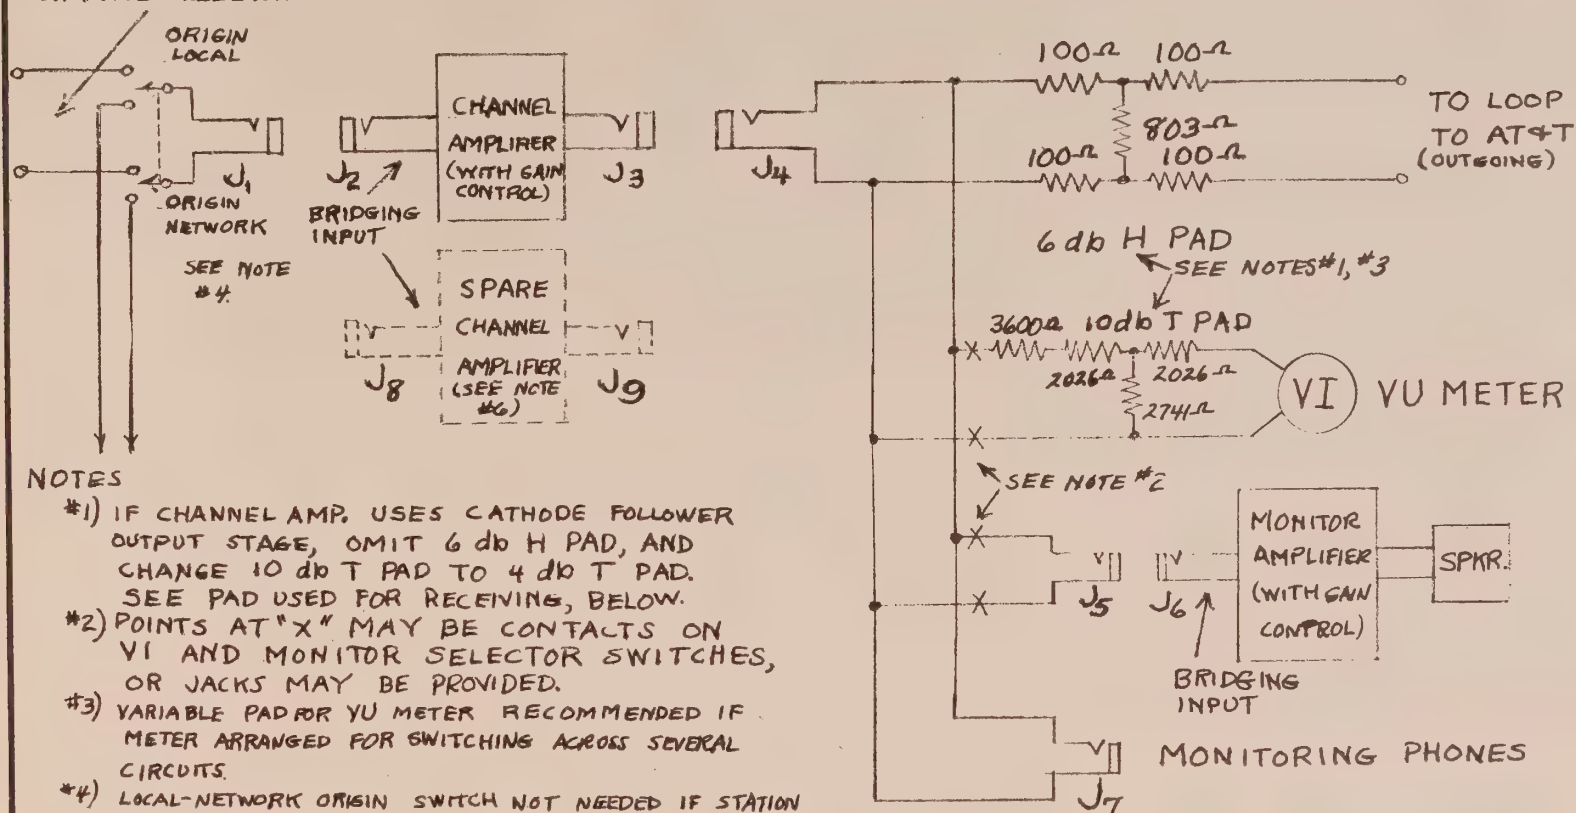 ORIGIN
LOCAL
J1
ORIGIN
NETWORK
SEE NOTE
#4.
J2
BRIDGING
INPUT
CHANNEL
AMPLIFIER
(WITH GAIN
CONTROL)
J3
J4
SPARE
CHANNEL
AMPLIFIER
(SEE NOTE
#6)
J8
J9
100Ω 100Ω
803Ω
100Ω 100Ω
TO LOOP
TO AT&T
(OUTGOING)
6 db H PAD
SEE NOTES #1, #3
3600Ω 10db T PAD
2026Ω 2026Ω
2741Ω
VI VU METER
SEE NOTE #2
J5 J6
MONITOR
AMPLIFIER
(WITH GAIN
CONTROL)
SPKR.
BRIDGING
INPUT
MONITORING PHONES
J7
NOTES
#1) IF CHANNEL AMP. USES CATHODE FOLLOWER
OUTPUT STAGE, OMIT 6 db H PAD, AND
CHANGE 10 db T PAD TO 4 db T PAD.
SEE PAD USED FOR RECEIVING, BELOW.
#2) POINTS AT "X" MAY BE CONTACTS ON
VI AND MONITOR SELECTOR SWITCHES,
OR JACKS MAY BE PROVIDED.
#3) VARIABLE PAD FOR VU METER RECOMMENDED IF
METER ARRANGED FOR SWITCHING ACROSS SEVERAL
CIRCUITS.
#4) LOCAL-NETWORK ORIGIN SWITCH NOT NEEDED IF STATION